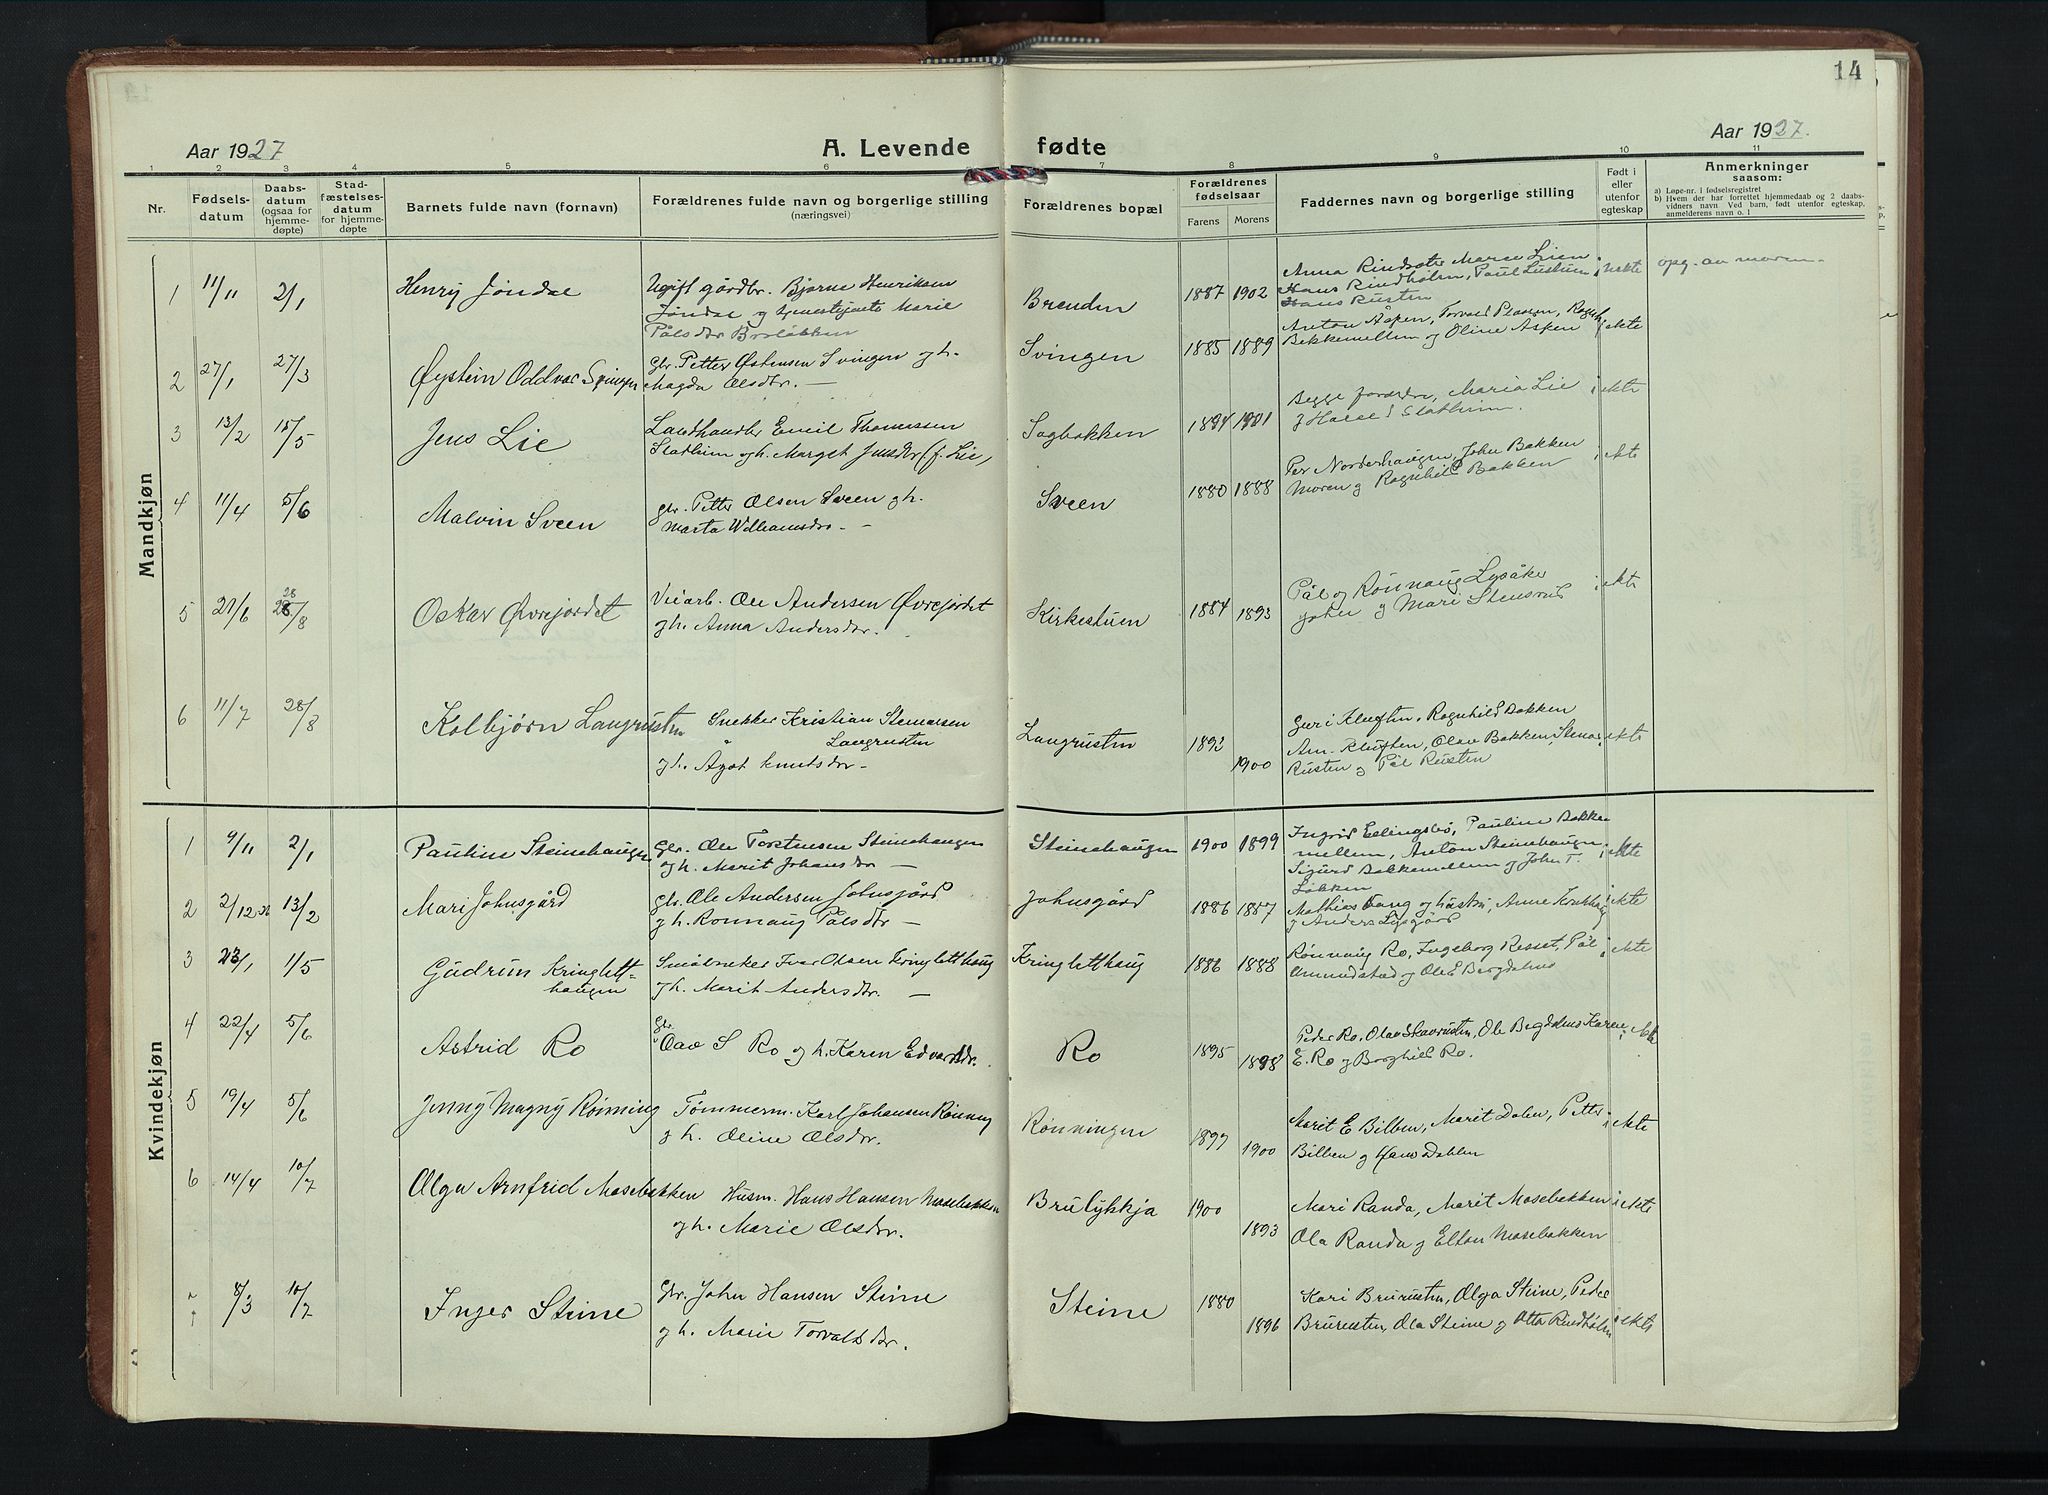 14
Aar 1927
A. Levende fødte
Aar 1927.
1 2 3 4 5 6 7 8 9 10 11
Nr.
Fødsels-
datum
Daabs-
datum
(ogsaa for
hjemme-
døpte)
Stad-
fæstelses-
datum
for hjemme-
døpte
Barnets fulde navn (fornavn)
Forældrenes fulde navn og borgerlige stilling
(næringsvei)
Forældrenes bopæl
Forældrenes
fødselsaar
Farens Morens
Faddernes navn og borgerlige stilling
Født i
eller
utenfor
egteskap
Anmerkninger
saasom:
a) Løpe-nr. i fødselsregistret
b) Hvem der har forrettet hjemmedaab og 2 daabs-
vidners navn Ved barn, født utenfor egteskap,
anmelderens navn o. l
Mandkjøn
1 11/11 2/1 Henry Jøndal
Ugift gårdbr. Bjarne Henriksen
Jøndal og tjenestejente Marie
Pålsdtr
Brenden 1887 1902
Anna Marie Lien
Hans Rindhølen, Paul
Hans Rusten
uekte
opg. av moren.
2 27/1 27/3 Øystein Oddvar Svingen
Gbr. Petter Østensen Svingen og h.
Magda Olsdtr. —
Svingen 1885 1889
Anton Aspen, Torvald Plassen,
Bekkemellem og Oline Aspen
i ekte
3 13/2 15/5 Jens Lie
Landhandler Emil Thomassen
Slatheim og h. Marget Jensdtr. (f. Lie)
Sagbakken 1894 1901
Begge foreldre, Maria Lie
Slatheim.
i ekte
4 11/4 5/6 Malvin Sveen
gbr. Petter Olsen Sveen og h.
Marta Wilhamsdtr. —
Sveen 1880 1888
Per Norderhaugen, John Bakken
Moren og Ragnhild Bakken
i ekte
5 21/6 28/8 Oskar Øvrejordet
Veiarb. Ole Andersen Øvrejordet
og h. Anna Andersdtr.
Kirkestuen 1884 1893
Pål og Rønnaug Lysåker
John og Mari Stensrud
i ekte
6 11/7 28/8 Kolbjørn Langrusten
Snekker Kristian Stenarsen
Langrusten
og h. Agot Knutsdtr. —
Langrusten 1892 1900
Guri Kluften, Ragnhild Bakken
Am. Kluften, Olav Bakken, Stenar
Rusten og Pål Rusten
i ekte
Kvindekjøn
1 9/11 2/1 Pauline Steinehaugen
Gbr. Ole Torstensen Steinehaugen
og h. Marit Johansdtr —
Steinehaugen 1900 1899
Ingrid Ellingsbø, Pauline Bekke-
mellem, Anton Steinehaugen,
Sigurd Bekkemellem og John T.
Løkken
i ekte
2 2/12 26 13/2 Mari Johnsgård
Gbr. Ole Andersen Johnsgård
og h. Rønnaug Pålsdtr —
Johnsgård 1886 1887
Mathias og hustru, Anne
og Anders Lysgård
i ekte
3 23/1 1/5 Gudrun Kringlett-
haugen
Småbruker Ivar Olsen Kringletthaug
og h. Marit Andersdtr. —
Kringletthaug 1886 1888
Rønnaug Ro, Ingeborg Resset, Pål
Amundstad og Ole E Bergdølmo
i ekte
4 22/4 5/6 Astrid Ro
Gbr.
Olav S Ro og h. Karen Edvardsdtr.
Ro 1895 1898
Peder Ro, Olav Skavrusten, Ole Bergdølmo, Karen
E. Ro og Borghild Ro.
i ekte
5 19/4 5/6 Jenny Magny Rønning
Tømmerm. Karl Johansen Rønning
og h. Oline Olsdtr.
Rønningen 1897 1900
Marit E Bilben, Marit Dalen, Petter
Bilben og Hans Dahlen
i ekte
6 14/4 10/7 Olga Arnfrid Mosebakken
Husm. Hans Hansen Mosebakken
og h. Marie Olsdtr.
Brulykkja 1900 1893
Mari Randa, Marit Mosebakken
Ola Randa og Elton Mosebakken
i ekte
8/3 10/7 Inger Steine
Gbr. John Hansen Steine
og h. Marie Torvaldsdtr.
Steine 1880 1896
Kari Brurusten, Olga Steine, Peder
Brurusten, Ola Steine og Otto Rindhølen
i ekte